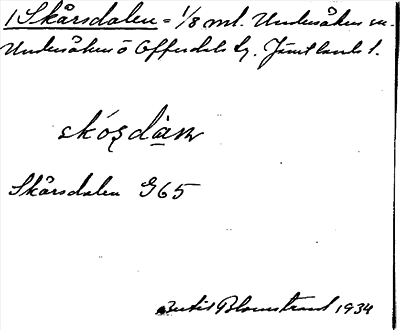 1 Skårsdalen = 1/8 mtl. Undersåkers sn.
Undersåkers o Offerdals tg. Jämtlands l.
skó̜ʂdàɳ
Skårsdalen G65
Bertil Blomstrand 1934